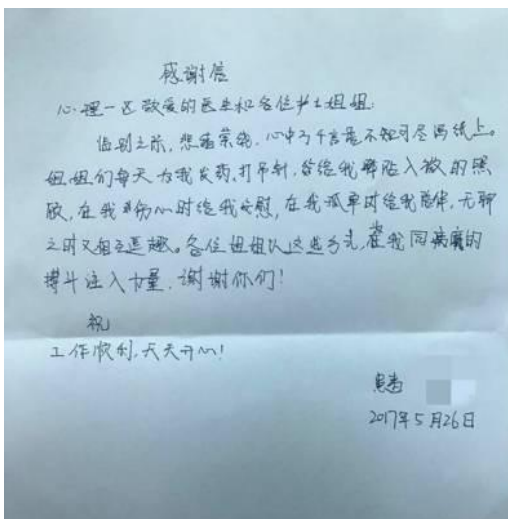 感谢信
心理一区敬爱的医生和各位护士姐姐:
临别之际,悲痛萦绕,心中万千言语不知可尽写纸上。
姐姐们每天为我发药,打吊针,皆给我体贴入微的照
顾,在我悲伤心时给我安慰,在我孤单时给我陪伴,无聊
之时又相互逗趣。各位姐姐以这些方式,在我同病魔的
搏斗注入力量,谢谢你们!
祝
工作顺利,天天开心!
患者
2017年5月26日